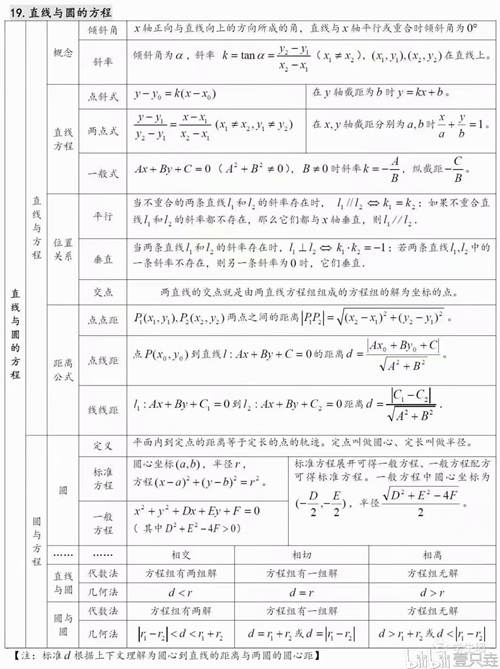 19. 直线与圆的方程
直线与圆的方程
直线与方程
概念
倾斜角
x 轴正向与直线向上的方向所成的角，直线与 x 轴平行或重合时倾斜角为 0°
斜率
倾斜角为 α，斜率 k = tan α = (y₂ − y₁)/(x₂ − x₁) (x₁ ≠ x₂)，(x₁, y₁), (x₂, y₂) 在直线上。
直线方程
点斜式
y − y₀ = k(x − x₀)
在 y 轴截距为 b 时 y = kx + b。
两点式
(y − y₁)/(y₂ − y₁) = (x − x₁)/(x₂ − x₁) (x₁ ≠ x₂, y₁ ≠ y₂)
在 x, y 轴截距分别为 a, b 时 x/a + y/b = 1。
一般式
Ax + By + C = 0 (A² + B² ≠ 0)，B ≠ 0 时斜率 k = −A/B，纵截距 −C/B。
位置关系
平行
当不重合的两条直线 l₁ 和 l₂ 的斜率存在时，l₁ // l₂ ⇔ k₁ = k₂；如果不重合直
线 l₁ 和 l₂ 的斜率都不存在，那么它们都与 x 轴垂直，则 l₁ // l₂.
垂直
当两条直线 l₁ 和 l₂ 的斜率存在时，l₁ ⊥ l₂ ⇔ k₁ · k₂ = −1；若两条直线 l₁, l₂ 中的
一条斜率不存在，则另一条斜率为 0 时，它们垂直.
交点
两直线的交点就是由两直线方程组组成的方程组的解为坐标的点。
距离公式
点点距
P₁(x₁, y₁), P₂(x₂, y₂) 两点之间的距离 |P₁P₂| = √((x₂ − x₁)² + (y₂ − y₁)²)。
点线距
点 P(x₀, y₀) 到直线 l : Ax + By + C = 0 的距离 d = |Ax₀ + By₀ + C|/√(A² + B²)。
线线距
l₁ : Ax + By + C₁ = 0 到 l₂ : Ax + By + C₂ = 0 距离 d = |C₁ − C₂|/√(A² + B²).
圆与方程
圆
定义
平面内到定点的距离等于定长的点的轨迹。定点叫做圆心、定长叫做半径。
标准方程
圆心坐标 (a, b)，半径 r，
方程 (x − a)² + (y − b)² = r²。
标准方程展开可得一般方程，一般方程配方
可得标准方程。一般方程中圆心坐标为
(−D/2, −E/2)，半径 √(D² + E² − 4F)/2。
一般方程
x² + y² + Dx + Ey + F = 0
（其中 D² + E² − 4F > 0）
…… …… 相交 相切 相离
直线与圆
代数法 方程组有两组解 方程组有一组解 方程组无解
几何法 d < r d = r d > r
圆与圆
代数法 方程组有两解 方程组有一组解 方程组无解
几何法 |r₁ − r₂| < d < r₁ + r₂ d = r₁ + r₂ 或 d = |r₁ − r₂| d > r₁ + r₂ 或 d < |r₁ − r₂|
【注：标准 d 根据上下文理解为圆心到直线的距离与两圆的圆心距】